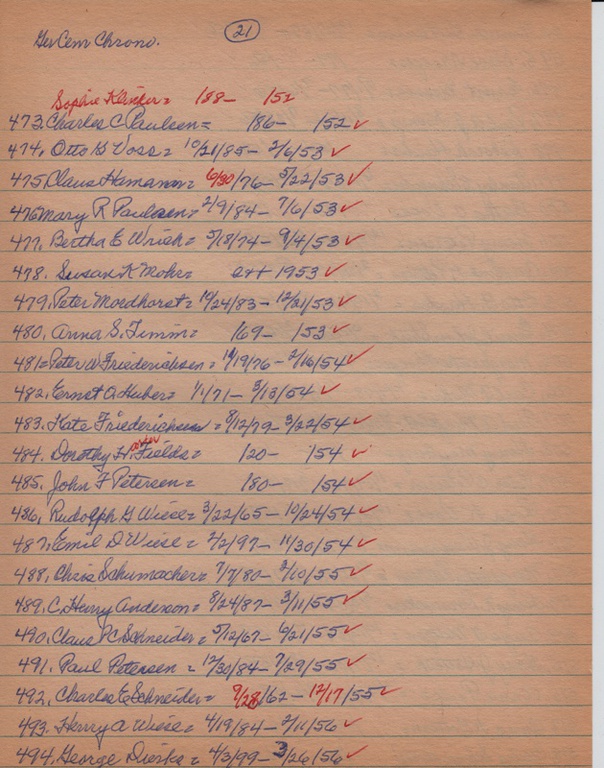 21
Ger Cem Chrono.
Sophie Klinker = 188- 152
473. Charles C Paulsen = 186- 152 ✓
474. Otto H Voss = 10/21/85 - 2/6/53 ✓
475. Claus Hamann = 6/30/76 - 5/22/53 ✓
476 Mary R Paulsen = 2/9/84 - 7/6/53 ✓
477. Bertha E Wriek = 5/18/74 - 9/4/53 ✓
478. Susan K Mohr = 1953 ✓
479. Peter Mordhorst = 10/24/83 - 12/21/53 ✓
480. Anna S. Timm = 169- 153 ✓
481 = Peter W Friederichsen = /19/76 - 2/16/54 ✓
482. Ernst A. Huber = 1/1/71 - 3/13/54 ✓
483. Kate Friederichsen = 8/12/79 - 3/22/54 ✓
484. Dorothy H. Fields = 120- 154 ✓
485. John F Petersen = 180- 154 ✓
486. Rudolph G Wiese = 3/22/65 - 10/24/54 ✓
487. Emil D Wiese = 2/2/97 - 11/30/54 ✓
488. Chris Schumacher = 7/7/80 - 2/10/55 ✓
489. C. Henry Anderson = 8/24/87 - 3/11/55 ✓
490. Claus P C Schneider = 5/12/67 - 6/21/55 ✓
491. Paul Petersen = 12/30/84 - 7/29/55 ✓
492. Charles E Schneider = 9/28/62 - 12/17/55 ✓
493. Henry A Wiese = 4/19/84 - 2/11/56 ✓
494. George Dierks = 4/3/99 - 3/26/56 ✓